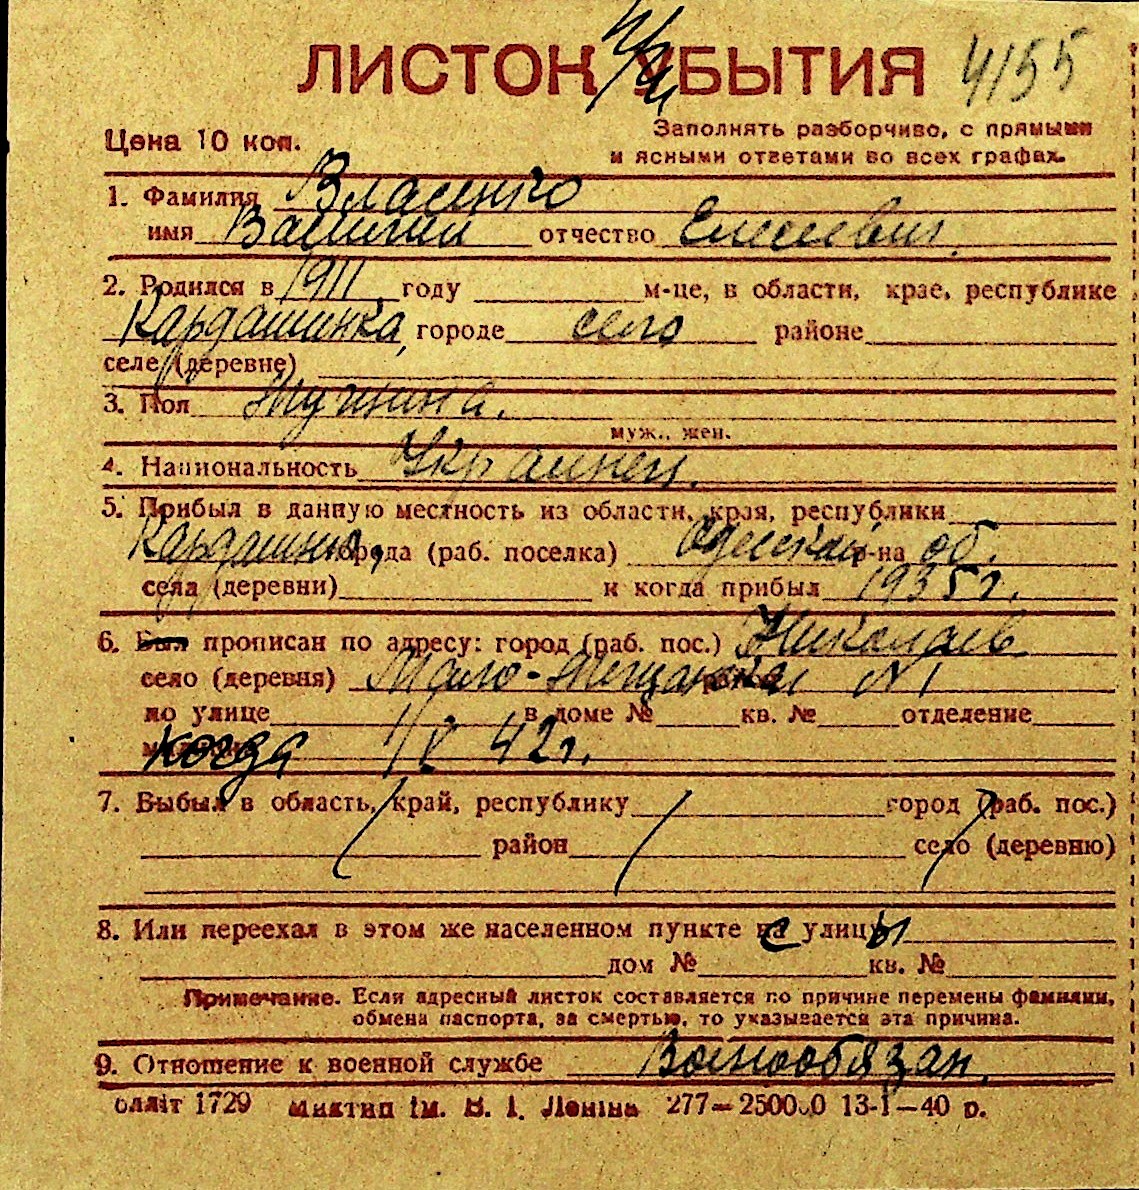 ЛИСТОК УБЫТИЯ 4155
Цена 10 коп.
Заполнять разборчиво, с прямыми
и ясными ответами во всех графах.
1. Фамилия Власенко
имя Василий отчество Елисеевич
2. Родился в 1911 году м-це, в области, крае, республике
Кардашинка, городе село районе
селе (деревне)
3. Пол Мущина.
муж., жен.
4. Национальность Украинец.
5. Прибыл в данную местность из области, края, республики
Кардашинка, города (раб. поселка) Одесской р-на об.
села (деревни) и когда прибыл 1935г.
6. Был прописан по адресу: город (раб. пос.) Николаев
село (деревня) Мало-Мещанская №1
по улице в доме № кв. № отделение
когда 1/X 42г.
7. Выбыл в область, край, республику город (раб. пос.)
район село (деревню)
8. Или переехал в этом же населенном пункте с улицы
дом № кв. №
Примечание. Если адресный листок составляется по причине перемены фамилии,
обмена паспорта, за смертью, то указывается эта причина.
9. Отношение к военной службе Воинообязан.
облліт 1729 Миктип ім. В. І. Леніна 277—250000 13-I—40 р.